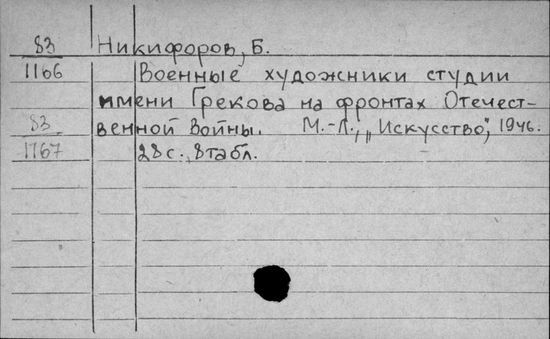 83 Никифоров, Б.
1166 Военные художники студии
имени Грекова на фронтах Отечест-
83 венной Войны. М.-Л., "Искусство", 1946.
1167 28 с., 8 табл.